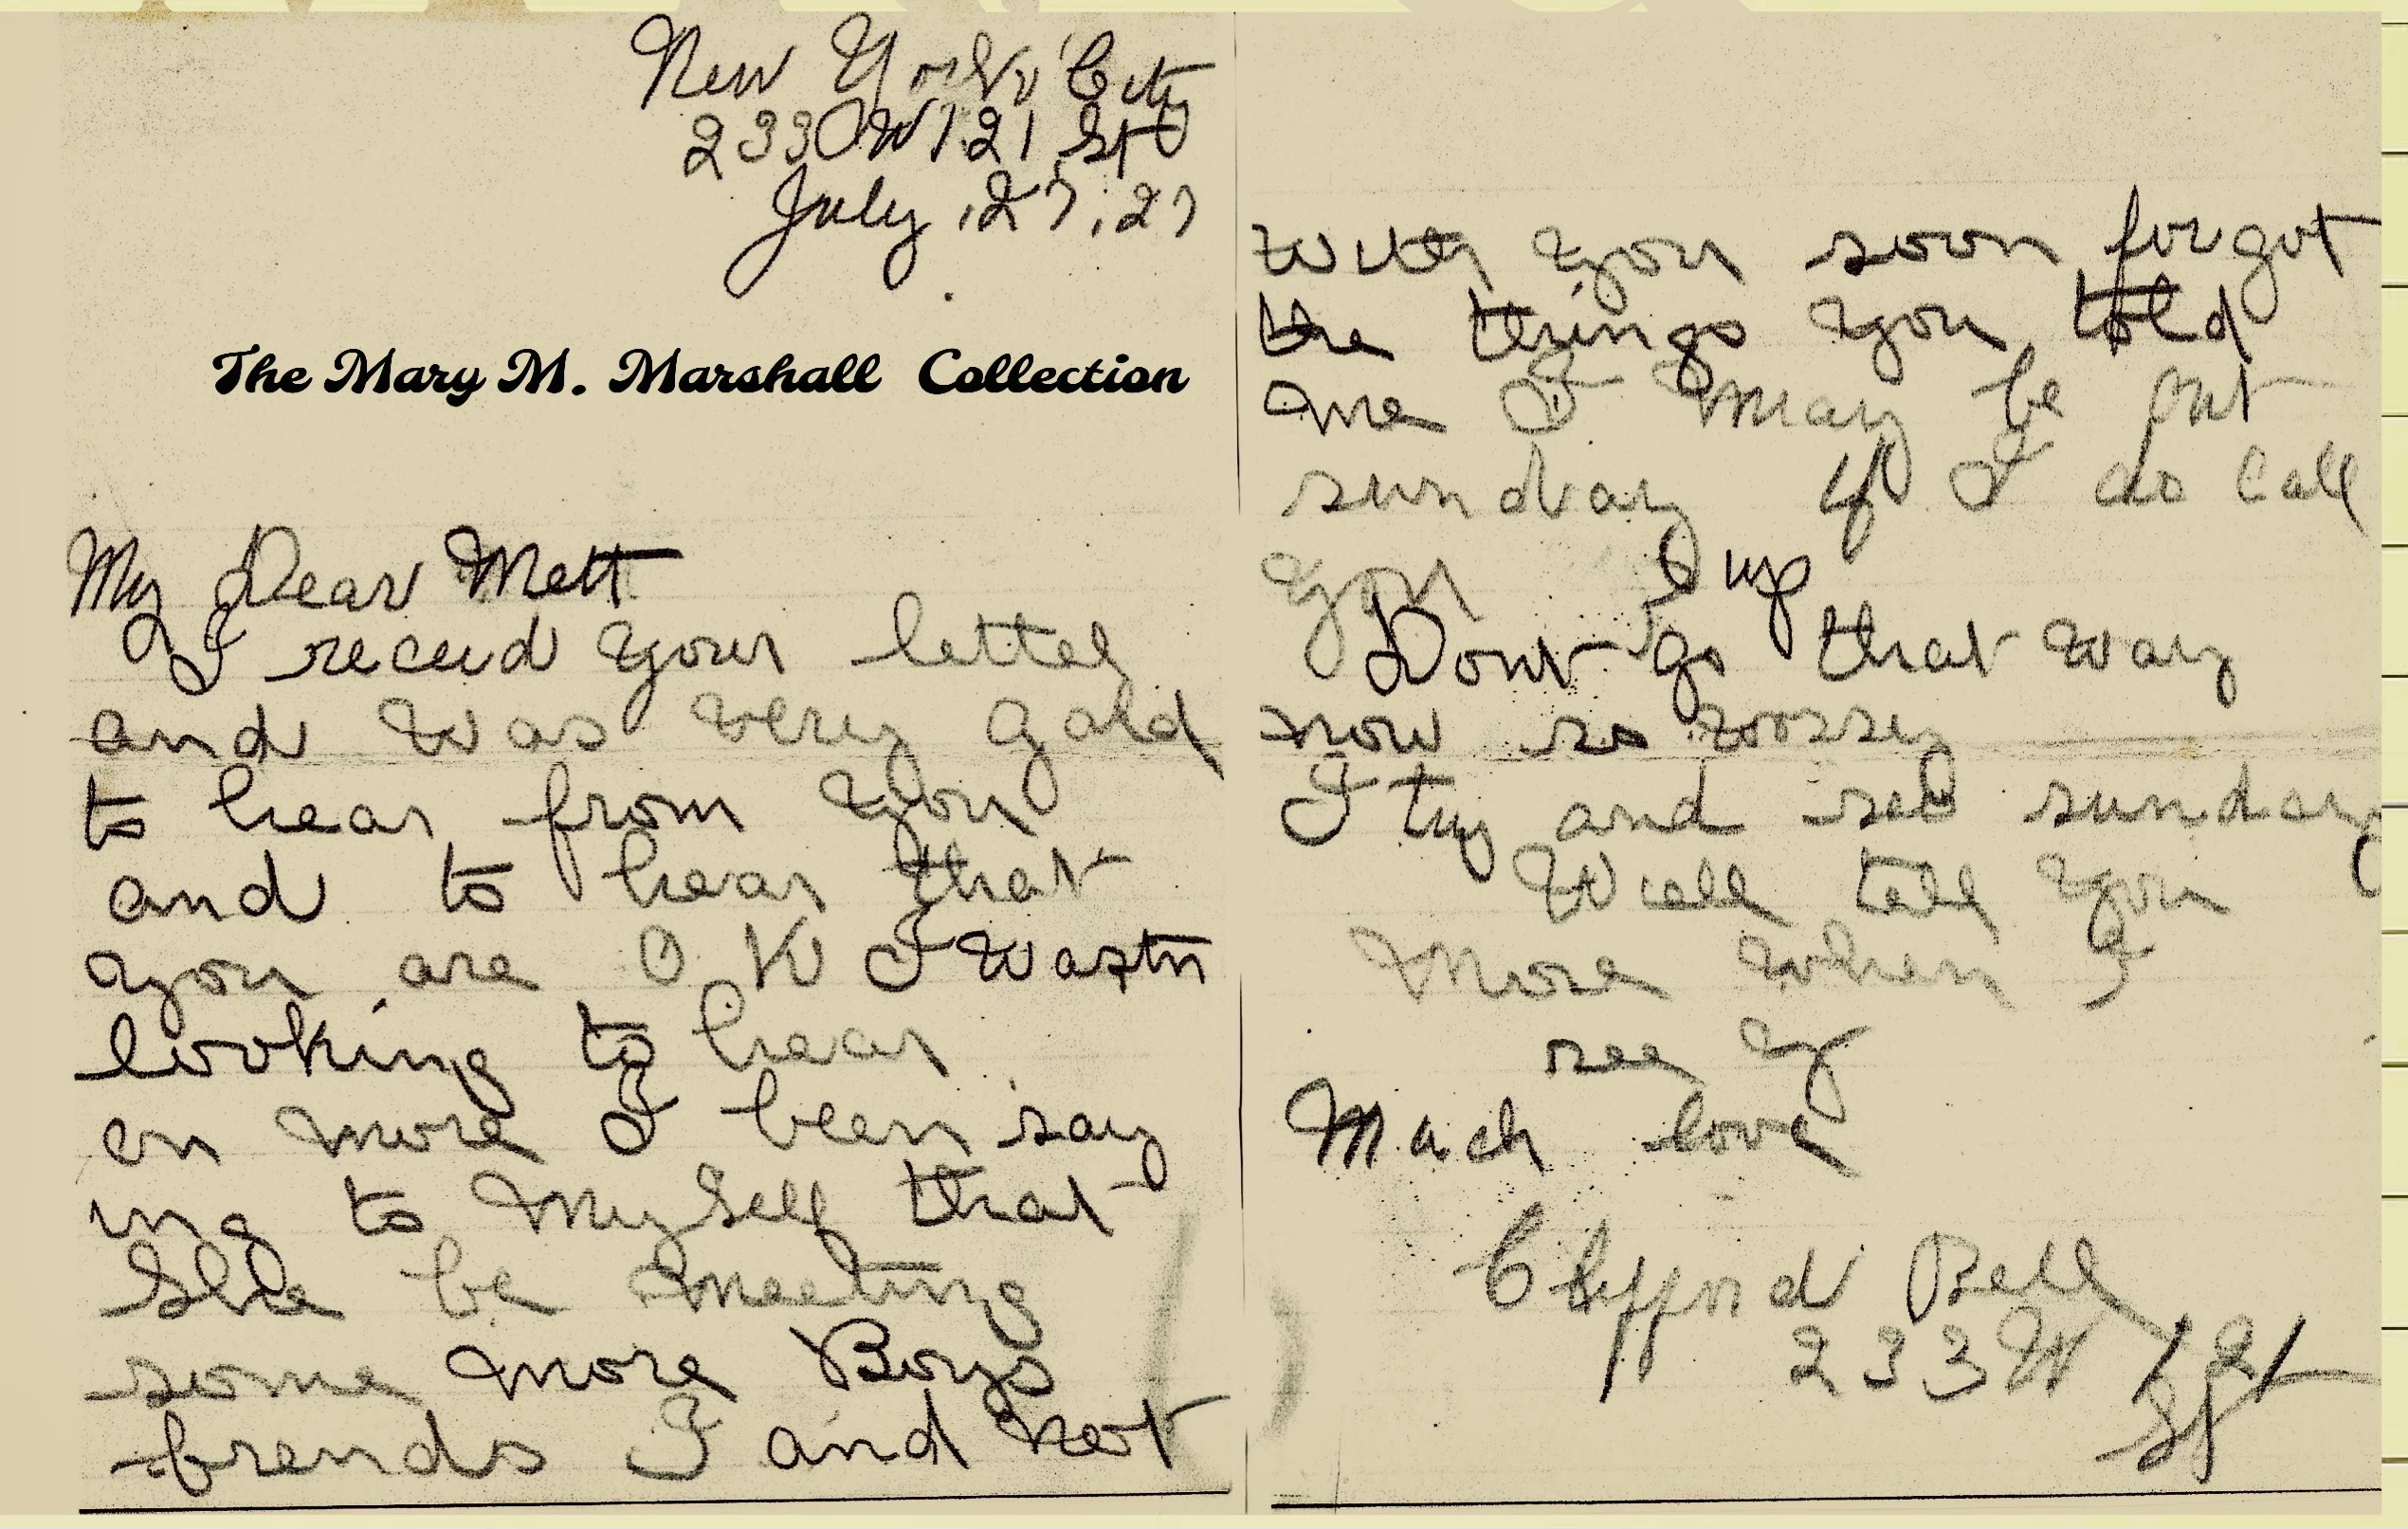 New York City
233 W 121 St
July, 27, 27
The Mary M. Marshall Collection
My Dear Mett
I receud your letter
and was very gald
to hear from you
and to hear that
you are O K I wastn
looking to hear
en more I been say
ing to MySelf that
She be meeting
some more Boys
frends I and not
with you soon forgot
the things you told
me I may be out
sunday if I do Call
you up
Dont go that way
now so
I try and see sunday
Well tell you
more when I
see y
Much love
Clifford Bell
233 W 121
St